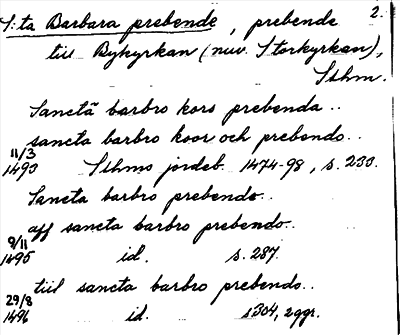 2.
S:ta Barbara prebende, prebende
till Bykyrkan (nuv. Storkyrkan),
Sthm.
Sanctā barbro kors prebenda..
sancta barbro koor och prebendo..
11/3
1490 Sthms jordeb. 1474-98, s. 230.
Sancta barbro prebendo..
aff sancta barbro prebendo..
9/11
1495 id. s. 287.
tiil sancta barbro prebendo..
29/8
1496 id. s304, 2ggr.